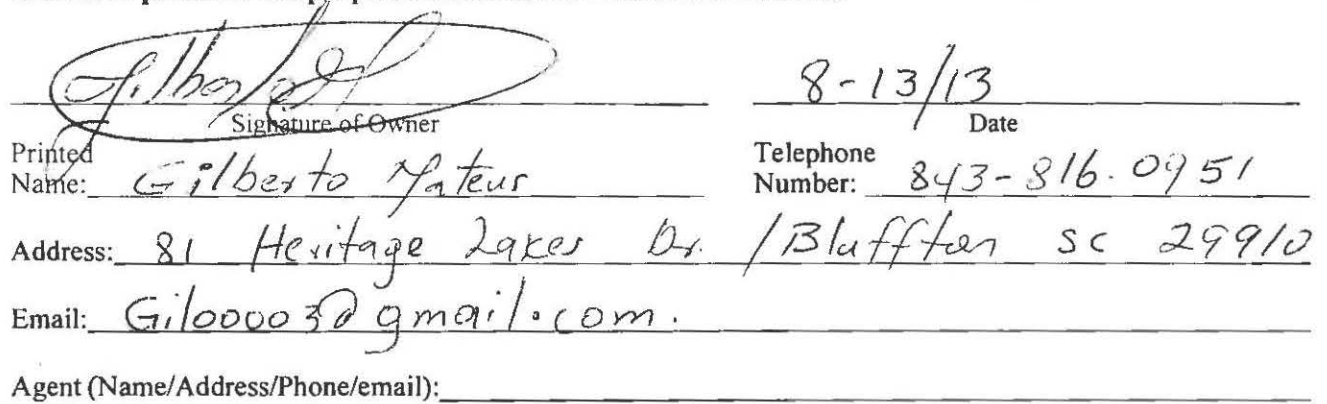 8-13/13
Signature of Owner Date
Printed Name: Gilberto Mateus Telephone Number: 843-816.0951
Address: 81 Heritage Lakes Dr. / Bluffton SC 29910
Email: Gil00003@gmail.com.
Agent (Name/Address/Phone/email):